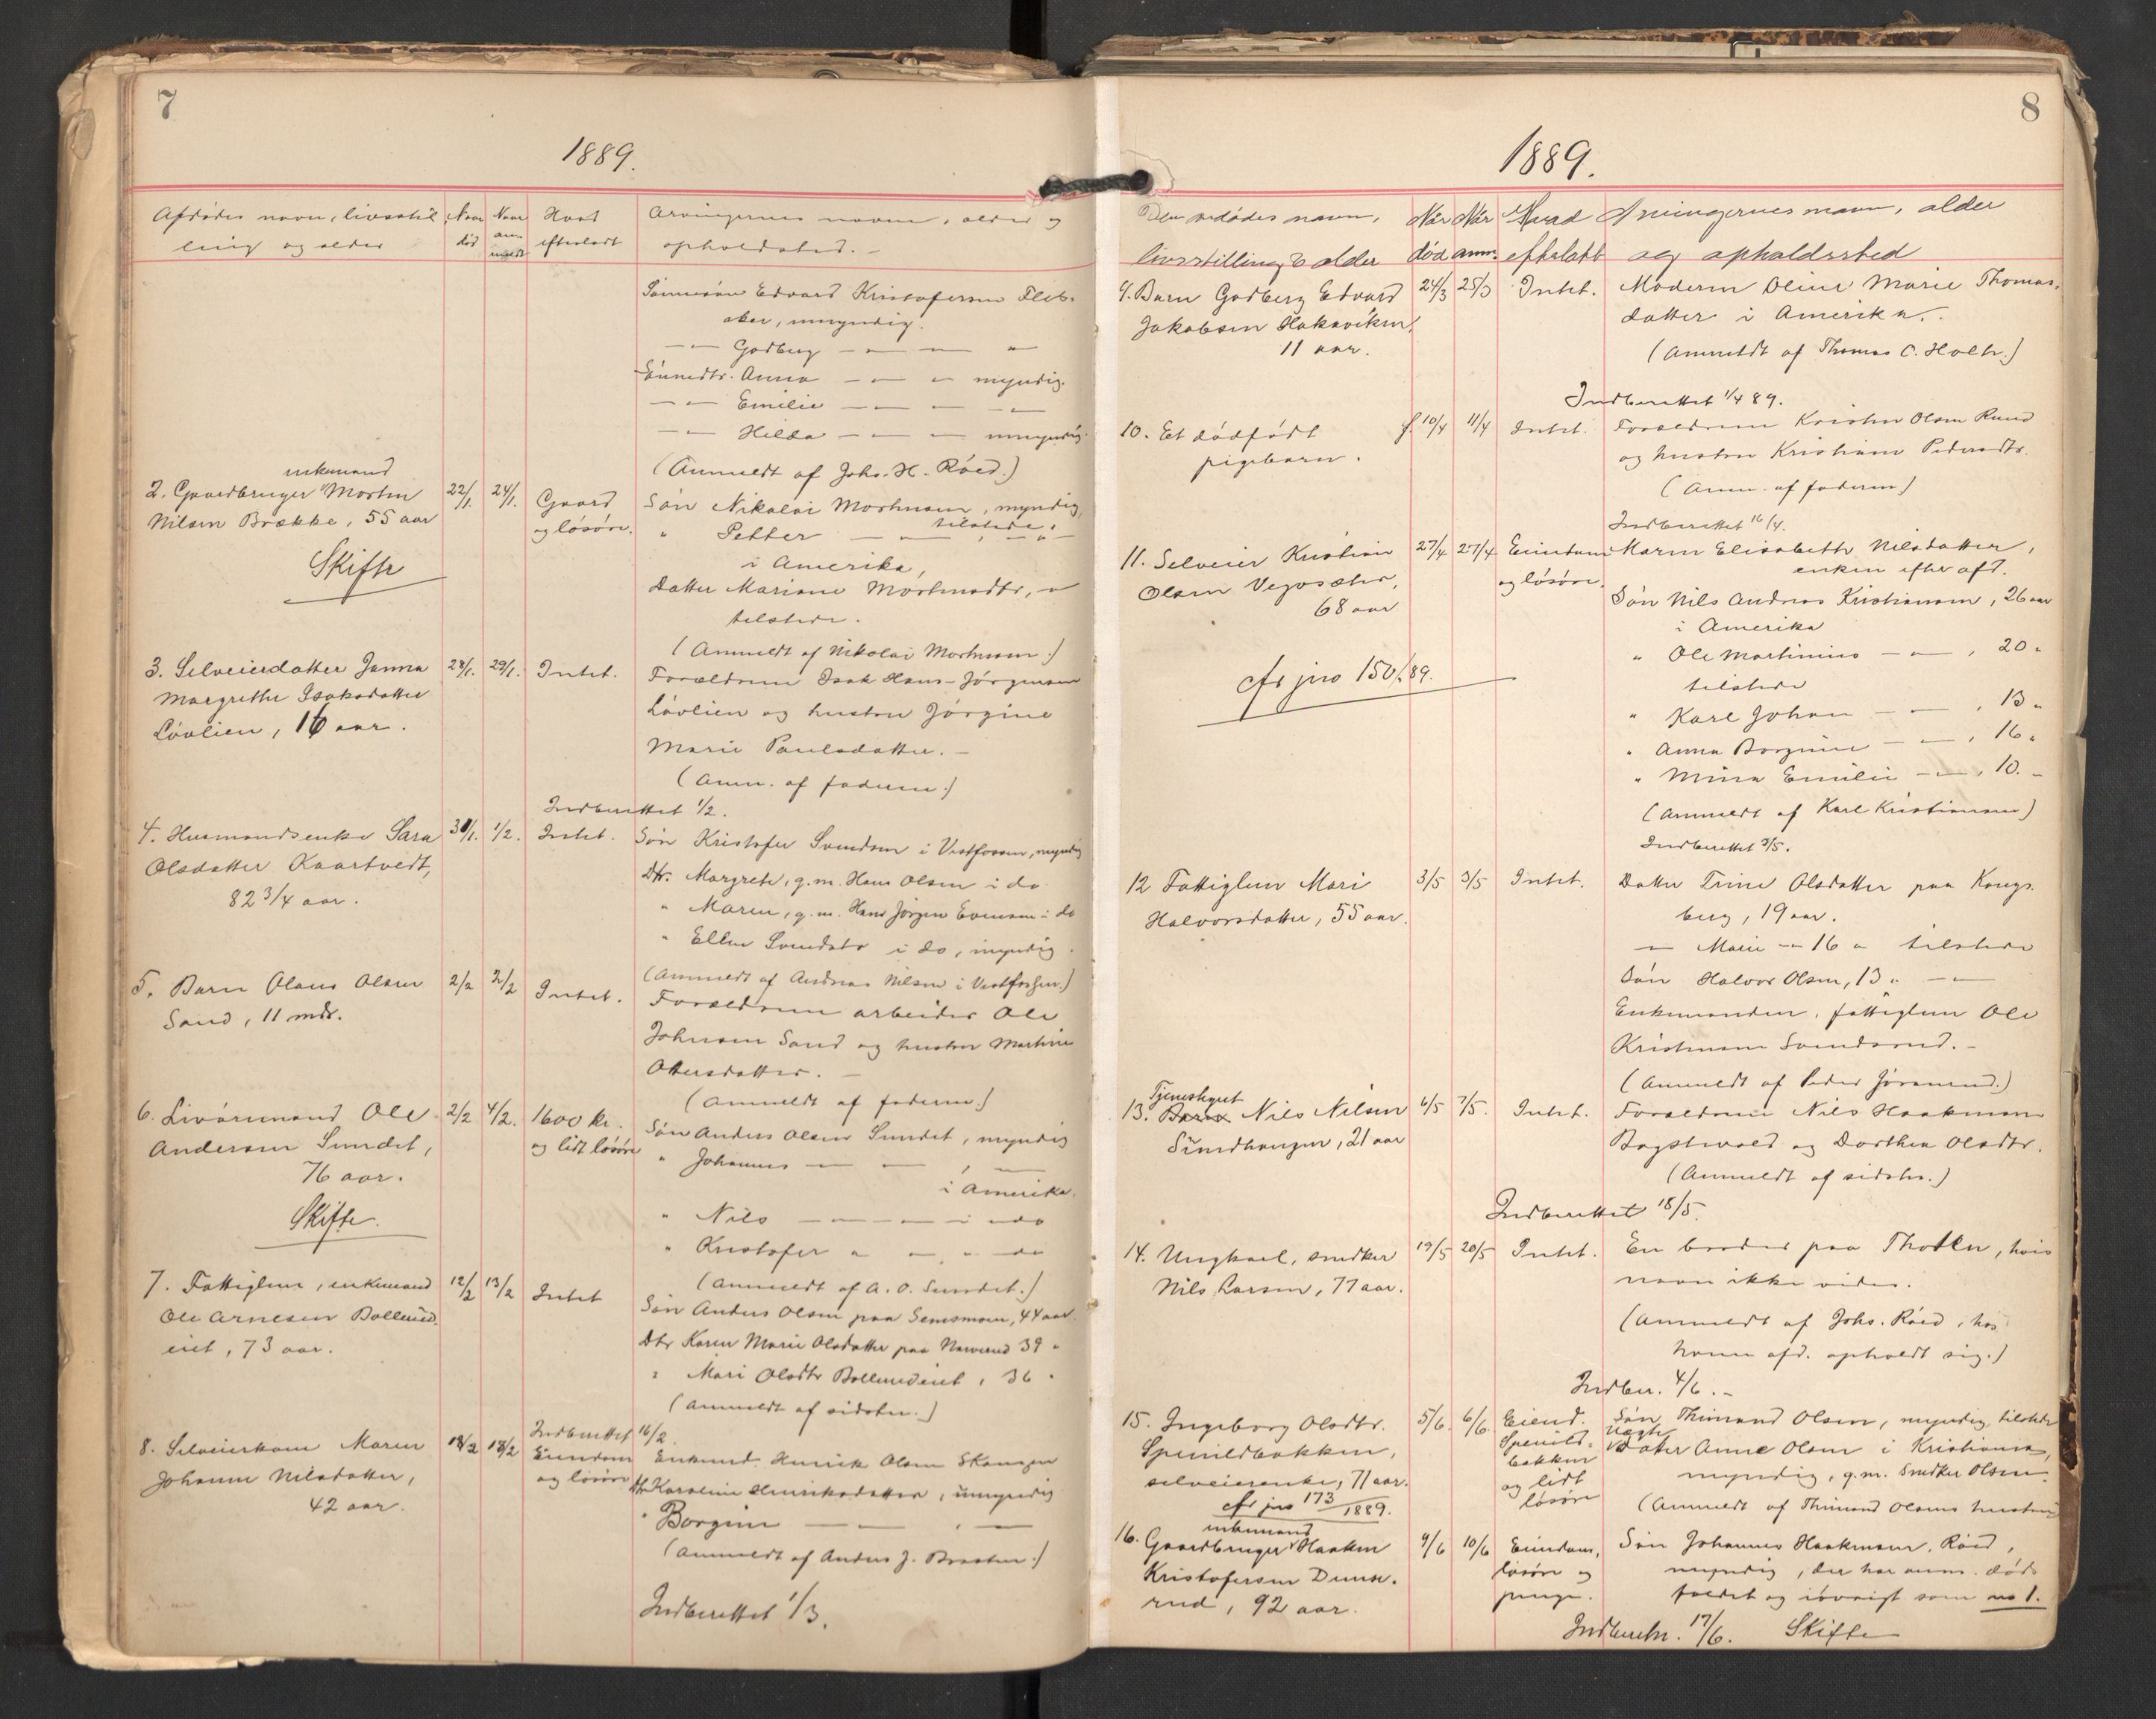 7
1889.
Afdødes navn, livsstil
ling og alder
Naar
død
Naar
an-
meldt
Hvad
efterladt
Arvingernes navne, alder og
opholdssted. -
Sønnesøn Edvard Kristofersen Fleb-
aker, umyndig.
— " — Godberg — " — — "
Sønnedtr. Anna — " — " myndig.
— " — Emilie — " — — " —
— " — Hilda — " — — umyndig.
(Anmeldt af Johs. H. Røed.)
enkemand
2. Gaardbruger Morten
Nilsen Brække, 55 aar
22/1. 24/1. Gaard
og løsøre.
Søn Nikolai Mortensen, myndig,
tilstede.
" Petter — " — , — " —
i Amerika,
Datter Mariane Mortensdtr, "
tilstede.
(Anmeldt af Nikolai Mortensen.)
Skifte
3. Selveierdatter Janna
Margrethe Isaksdatter
Løvlien, 16 aar.
28/1. 29/1. Intet.
Forældrene Isak Hans-Jørgensen
Løvlien og hustru Jørgine
Marie Paulsdatter. -
(Anm. af faderen.)
Indberettet 1/2.
4. Husmandsenke Sara
Olsdatter Kaartvedt,
82 3/4 aar.
31/1. 1/2. Intet.
Søn Kristofer Svendsen i Vestfossen, myndig
Dtr. Margrete, g. m. Hans Olsen i do
" Maren, g. m. Hans Jørgen Evensen i do
" Ellen Svendsdtr i do, myndig.
(Anmeldt af Andreas Nilsen i Vestfossen.)
5. Barn Olaus Olsen
Sand, 11 mdr.
2/2 2/2 Intet.
Forældrene arbeider Ole
Johnsen Sand og hustru Martine
Ottersdatter. —
(Anmeldt af faderen.)
6. Livøremand Ole
Andersen Sundet,
76 aar.
2/2 4/2. 1600 kr.
og lidt løsøre
Søn Anders Olsen Sundet, myndig
" Johannes — " — , —
i Amerika.
" Nils — " — " — i do
" Kristofer " — " do
(Anmeldt af A. O. Sundet.)
Skifte.
7. Fattiglem, enkemand
Ole Arnesen Bollerud-
eiet, 73 aar.
12/2 13/2 Intet
Søn Anders Olsen paa Semsmoen, 44 aar
Dtr Karen Marie Olsdatter paa 39 "
" Mari Olsdtr Bollerudeiet, 36 "
(Anmeldt af sidstn.)
Indberettet 16/2.
8. Selveierkone Maren
Johanne Nilsdatter,
42 aar.
18/2 18/2 Eiendom
og løsøre
Enkemd. Henrik Olsen Skangen
Dtr Karoline Henriksdatter, umyndig
" Borgine — " — , —
(Anmeldt af Anders J. Braaten.)
Indberettet 1/3.
8
1889.
Den afdødes navn,
livsstilling & alder
Når
død
Når
anm.
Hvad
efterladt
Arvingernes navn, alder
og opholdssted
9. Barn Godberg Edvard
Jakobsen Hakavikn,
11 aar.
24/3 25/3 Intet.
Moderen Oline Marie Thomas-
datter i Amerika.
(Anmeldt af Thomas C. Holte.)
Indberettet 1/4 89.
10. Et dødfødt
pigebarn.
f. 10/4 11/4 Intet.
Forældrene Kristen Olsen Ruud
og hustru Kristiane Pedersdtr.
(Anm. af faderen)
Indberettet 16/4.
11. Selveier Kristian
Olsen Vegosæter,
68 aar
27/4 27/4 Eiendom
og løsøre.
Maren Elisabeth Nilsdatter,
enken efter afd.
Søn Nils Andreas Kristiansen, 26 aar
i Amerika
" Ole Martinius — " — , 20 "
tilstede
" Karl Johan — " — , 13 "
" Anna Borgine — " — , 16 "
" Mina Emilie — " — , 10. "
(Anmeldt af Karl Kristiansen)
Indberettet 3/5.
cfr jno 150/89.
12 Fattiglem Mari
Halvorsdatter, 55 aar.
3/5 3/5 Intet.
Datter Trine Olsdatter paa Kongs-
berg, 19 aar.
— " Marie — " 16 " tilstede
Søn Halvor Olsen, 13 " — " —
Enkemanden, fattiglem Ole
Kristensen Svendsrud. -
(Anmeldt af Peder Jøransrud.)
Tjenestegut
13. Barn Nils Nilsen
Sundhaugen, 21 aar
6/5 7/5. Intet.
Forældrene Nils Haakensen
Bagstevold og Dorthea Olsdtr.
(Anmeldt af sidstn.)
Indberettet 18/5.
14. Ungkarl, snedker
Nils Larsen, 77 aar.
19/5 20/5 Intet.
En broder paa Thoten, hvis
navn ikke vides.
(Anmeldt af Johs. Røed, hos
hvem afd. opholdt sig.)
Indber. 4/6. -
15. Ingeborg Olsdtr.
Spenildbakken,
selveierenke, 71 aar.
cfr jno 173/1889.
5/6. 6/6. Eiend.
Spenild-
bakken
og lidt
løsøre
Søn Thimand Olsen, myndig, tilstede
Datter Anne Olsen i Kristiania,
myndig, g. m. Snedker Olsen.
(Anmeldt af Thimand Olsens hustru)
enkemand
16. Gaardbruger Haaken
Kristofersen Dunse-
rud, 92 aar.
9/6 10/6 Eiendom,
løsøre og
penge.
Søn Johannes Haakensen Røed,
myndig, der har anm. døds-
faldet og iøvrigt som no 1.
Indberetn. 17/6. Skifte